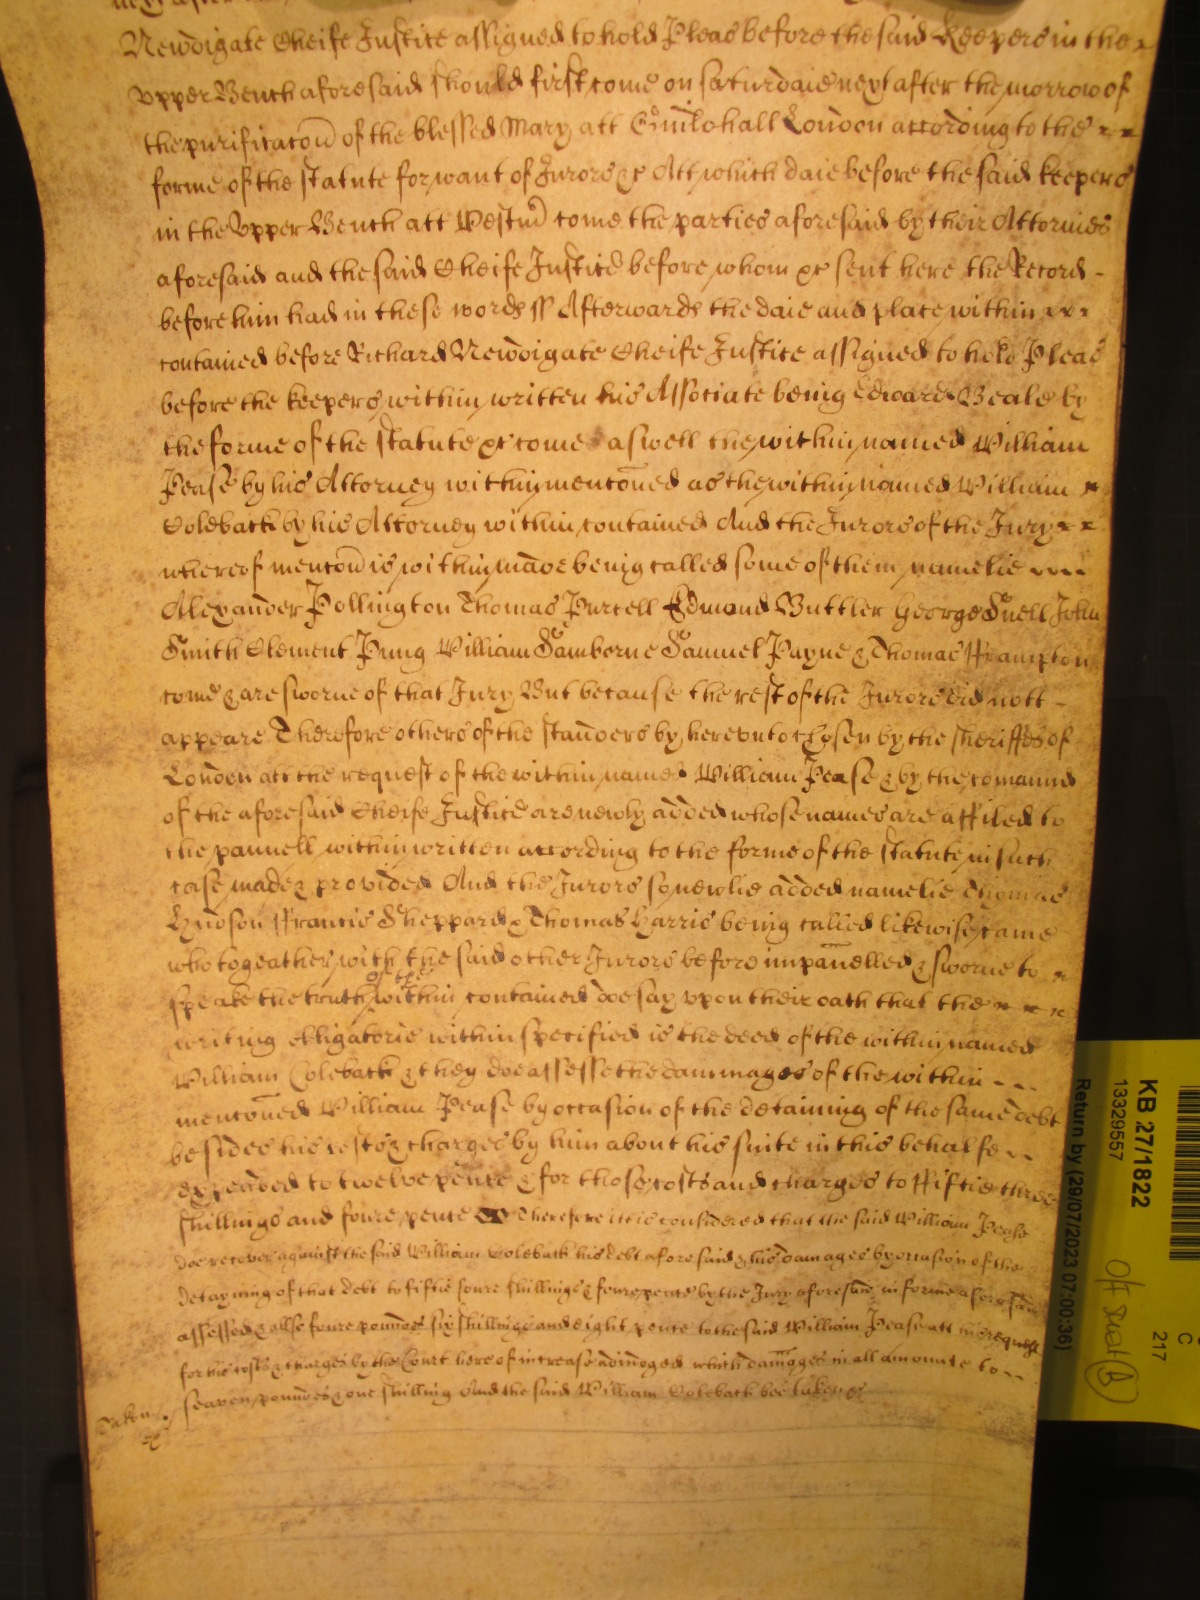 Newdigate Cheife Justice assigned to hold Pleas before the said Keepers in the
vpper Bench aforesaid should first come on saturdaie next after the morrow of
the purificatoñ of the blessed Mary att Guildhall London according to the
forme of the statute for want of Jurors &c Att which daie before the said keepers
in the Vpper Bench att Westm̃ come the parties aforesaid by their Attornies
aforesaid and the said Cheife Justice before whom &c sent here the Record
before him had in these words ss Afterwards the daie and place within
contained before Richard Newdigate Cheife Justice assigned to hold Pleas
before the keepers within written his Associate being Edward Beale by
the forme of the statute &c come aswell the within named William
Pease by his Attorney within mentoned as the within named William
Coleback by his Attorney within contained And the Jurors of the Jury
whereof mentoñ is within made being called some of them namelie
Alexander Pollington Thomas Purcell Edmond Buttler George Snell John
Smith Clement Pung William Samborne Samuel Payne & Thomas Frampton
come & are sworne of that Jury But because the rest of the Jurors did nott
appeare Therefore others of the standers by herevnto chosen by the sheriffes of
London att the request of the within named William Pease & by the comaund
of the aforesaid Cheife Justice are newly added whose names are affiled to
the pannell within written according to the forme of the statute in such
case made & provided And the Jurors so newlie added namelie Thomas
Hudson Francis Sheppard & Thomas Harris being called likewise came
who togeather with the said other Jurors before impanelled & sworne to
speake the truth of the within contained doe say vpon their oath that the
writing obligatorie within specified is the deed of the within named
William Coleback & they doe assesse the dammages of the within
mentoned William Pease by occasion of the detaining of the same debt
besides his costs & charges by him about his suite in this behalfe
expended to twelve pence & for those costs and charges to fiftie three
shillings and foure pence Therefore it is considered that the said William Pease
doe recover against the said William Coleback his debt aforesaid & his damages by occasion of the
detayning of that debt to fiftie foure shillings & foure pence by the Jury aforesaid in forme aforesaid
assessed & allse foure pounds six shillings and eight pence to the said William Pease att his request
for his costs & charges by the Court here of increase adiudged which damages in all amounte to
seaven pounds & one shilling And the said William Coleback bee taken &c
Taken
&c
KB 27/1822
13329557
Return by (29/07/2023 07:00:36)
C
217